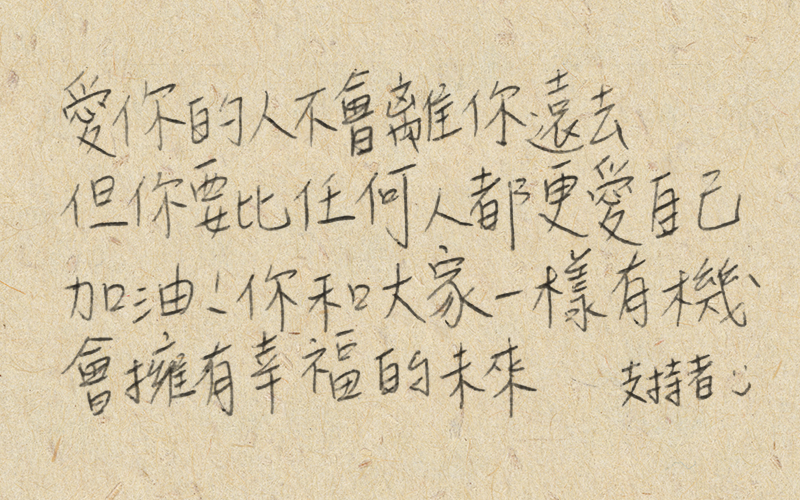 愛你的人不會離你遠去
但你要比任何人都更愛自己
加油!你和大家一樣有機
會擁有幸福的未來 支持者:)